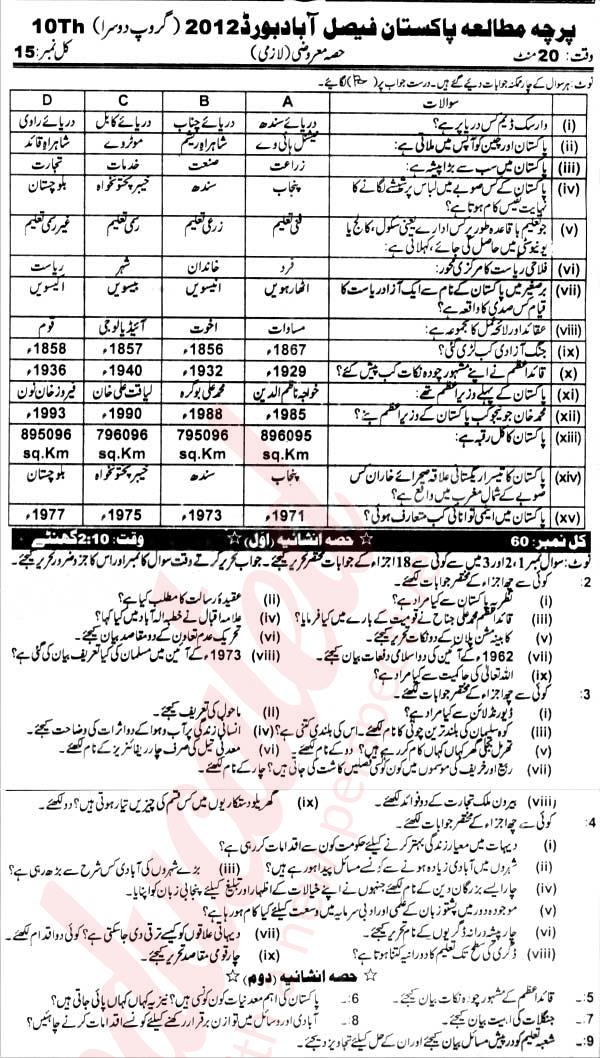 پرچہ مطالعہ پاکستان فیصل آباد بورڈ 2012 (گروپ دوسرا) 10Th
وقت: 20 منٹ حصہ معروضی (لازمی) کل نمبر: 15
نوٹ: ہر سوال کے چار ممکنہ جوابات دیئے گئے ہیں۔ درست جواب پر () لگائیے۔
سوالات A B C D
(i) وارسک ڈیم کس دریا پر ہے؟ دریائے سندھ دریائے چناب دریائے کابل دریائے راوی
(ii) پاکستان اور چین کو آپس میں ملاتی ہے: نیشنل ہائی وے شاہراہ ریشم موٹروے شاہراہ قائد
(iii) پاکستان میں سب سے بڑا پیشہ ہے: زراعت صنعت خدمات تجارت
(iv) پاکستان کے کس صوبے میں لباس پر شیشے لگانے کا پنجاب سندھ خیبر پختونخواہ بلوچستان
نہایت نفیس کام ہوتا ہے؟
(v) جو تعلیم باقاعدہ طور پر کس ادارے یعنی سکول، کالج یا فنی تعلیم زرعی تعلیم رسمی تعلیم غیر رسمی تعلیم
یونیورسٹی میں حاصل کی جائے، کہلاتی ہے:
(vi) فلاحی ریاست کا مرکزی محور: فرد خاندان شہر ریاست
(vii) برصغیر میں پاکستان کے نام سے ایک آزاد ریاست کا اٹھارہویں انیسویں بیسویں اکیسویں
قیام کس صدی کا واقعہ ہے؟
(viii) عقائد اور لائحہ عمل کا مجموعہ ہے: مساوات اخوت آئیڈیالوجی قوم
(ix) جنگ آزادی کب لڑی گئی؟ 1867ء 1856ء 1857ء 1858ء
(x) قائداعظم نے اپنے مشہور چودہ نکات کب پیش کئے؟ 1929ء 1932ء 1940ء 1936ء
(xi) پاکستان کے پہلے وزیراعظم تھے: خواجہ ناظم الدین محمد علی بوگرہ لیاقت علی خان فیروز خان نون
(xii) محمد خان جونیجو کب پاکستان کے وزیراعظم بنے؟ 1985ء 1988ء 1990ء 1993ء
(xiii) پاکستان کا کل رقبہ ہے: 896095 sq.Km 795096 sq.Km 796096 sq.Km 895096 sq.Km
(xiv) پاکستان کا تیسرا ریگستانی علاقہ صحرائے خاران کس پنجاب سندھ خیبر پختونخواہ بلوچستان
صوبے کے شمال مغرب میں واقع ہے؟
(xv) پاکستان میں ایٹمی توانائی کب متعارف ہوئی؟ 1971ء 1973ء 1975ء 1977ء
کل نمبر: 60 حصہ انشائیہ (اول) وقت: 2:10 گھنٹے
نوٹ: سوال نمبر 1، 2 اور 3 میں سے کوئی سے 18 اجزاء کے جوابات مختصر تحریر کیجئے۔ جواب تحریر کرتے وقت سوال کا نمبر اور اس کا جزو ضرور تحریر کیجئے۔
2: کوئی سے چھ اجزاء کے مختصر جوابات لکھئے۔
(i) نظریہ پاکستان سے کیا مراد ہے؟ (ii) عقیدۂ رسالت کا مطلب کیا ہے؟
(iii) قائداعظم محمد علی جناح نے قومیت کے بارے میں کیا فرمایا؟ (iv) علامہ اقبال نے خطبہ الہ آباد میں کیا کہا؟
(v) کابینہ مشن پلان کے دو نکات تحریر کیجئے۔ (vi) تحریک عدم تعاون کے دو مقاصد بیان کیجئے۔
(vii) 1962ء کے آئین کی دو اسلامی دفعات بیان کیجئے۔ (viii) 1973ء کے آئین میں مسلمان کی کیا تعریف بیان کی گئی ہے؟
(ix) اللہ تعالیٰ کی حاکمیت سے کیا مراد ہے؟
3: کوئی سے چھ اجزاء کے مختصر جوابات لکھئے۔
(i) ڈیورنڈ لائن سے کیا مراد ہے؟ (ii) ماحول کی تعریف کیجئے۔
(iii) کوہ سلیمان کی بلند ترین چوٹی کا نام لکھئے۔ اس کی بلندی کتنی ہے؟ (iv) انسانی زندگی پر آب و ہوا کے دو اثرات کی وضاحت کیجئے۔
(v) تھرمل بجلی گھر کہاں کہاں کام کر رہے ہیں؟ دو کے نام لکھئے۔ (vi) معدنی تیل کی صرف چار ریفائنریز کے نام لکھئے۔
(vii) ربیع اور خریف کی موسموں میں کون کون سی فصلیں کاشت کی جاتی ہیں؟ چار کے نام لکھئے۔
(viii) بیرون ملک تجارت کے دو فوائد لکھئے۔ (ix) گھریلو دستکاریوں میں کس قسم کی چیزیں تیار ہوتی ہیں؟ دو لکھئے۔
4: کوئی سے چھ اجزاء کے مختصر جوابات لکھئے۔
(i) دیہات میں معیار زندگی بہتر کرنے کیلئے حکومت کون سے اقدامات کر رہی ہے؟
(ii) شہروں میں آبادی زیادہ ہونے سے کونسے مسائل پیدا ہو رہے ہیں؟ (iii) بڑے شہروں کی آبادی کس شرح سے بڑھ رہی ہے؟
(iv) چار ایسے بزرگان دین کے نام لکھئے جنہوں نے اپنے خیالات کے اظہار اور تبلیغ کیلئے پنجابی زبان کو اپنایا۔
(v) موجودہ دور میں پشتو زبان کے علمی اور ادبی سرمایہ میں وسعت کیلئے کیا کام ہو رہا ہے؟
(vi) چار پیشہ ورانہ ڈگریوں کے نام لکھئے۔ (vii) دیہاتی علاقوں کو کیسے ترقی دی جا سکتی ہے؟ کوئی دو اقدام لکھئے۔
(viii) ڈگری کی سطح تک تعلیم کا دورانیہ کتنا ہوتا ہے؟ (ix) چار قومی مقاصد تحریر کیجئے۔
حصہ انشائیہ (دوم)
5:۔ قائداعظم کے مشہور چودہ نکات بیان کیجئے۔ 6:۔ پاکستان کی اہم معدنیات کون کونسی ہیں؟ نیز یہ کہاں کہاں پائی جاتی ہیں؟
7:۔ جنگلات کی اہمیت بیان کیجئے۔ 8:۔ آبادی اور وسائل میں توازن برقرار رکھنے کیلئے کونسے اقدامات کرنے چاہئیں؟
9:۔ شعبہ تعلیم کو درپیش مسائل بیان کیجئے اور ان کے حل کیلئے تجاویز دیجئے۔